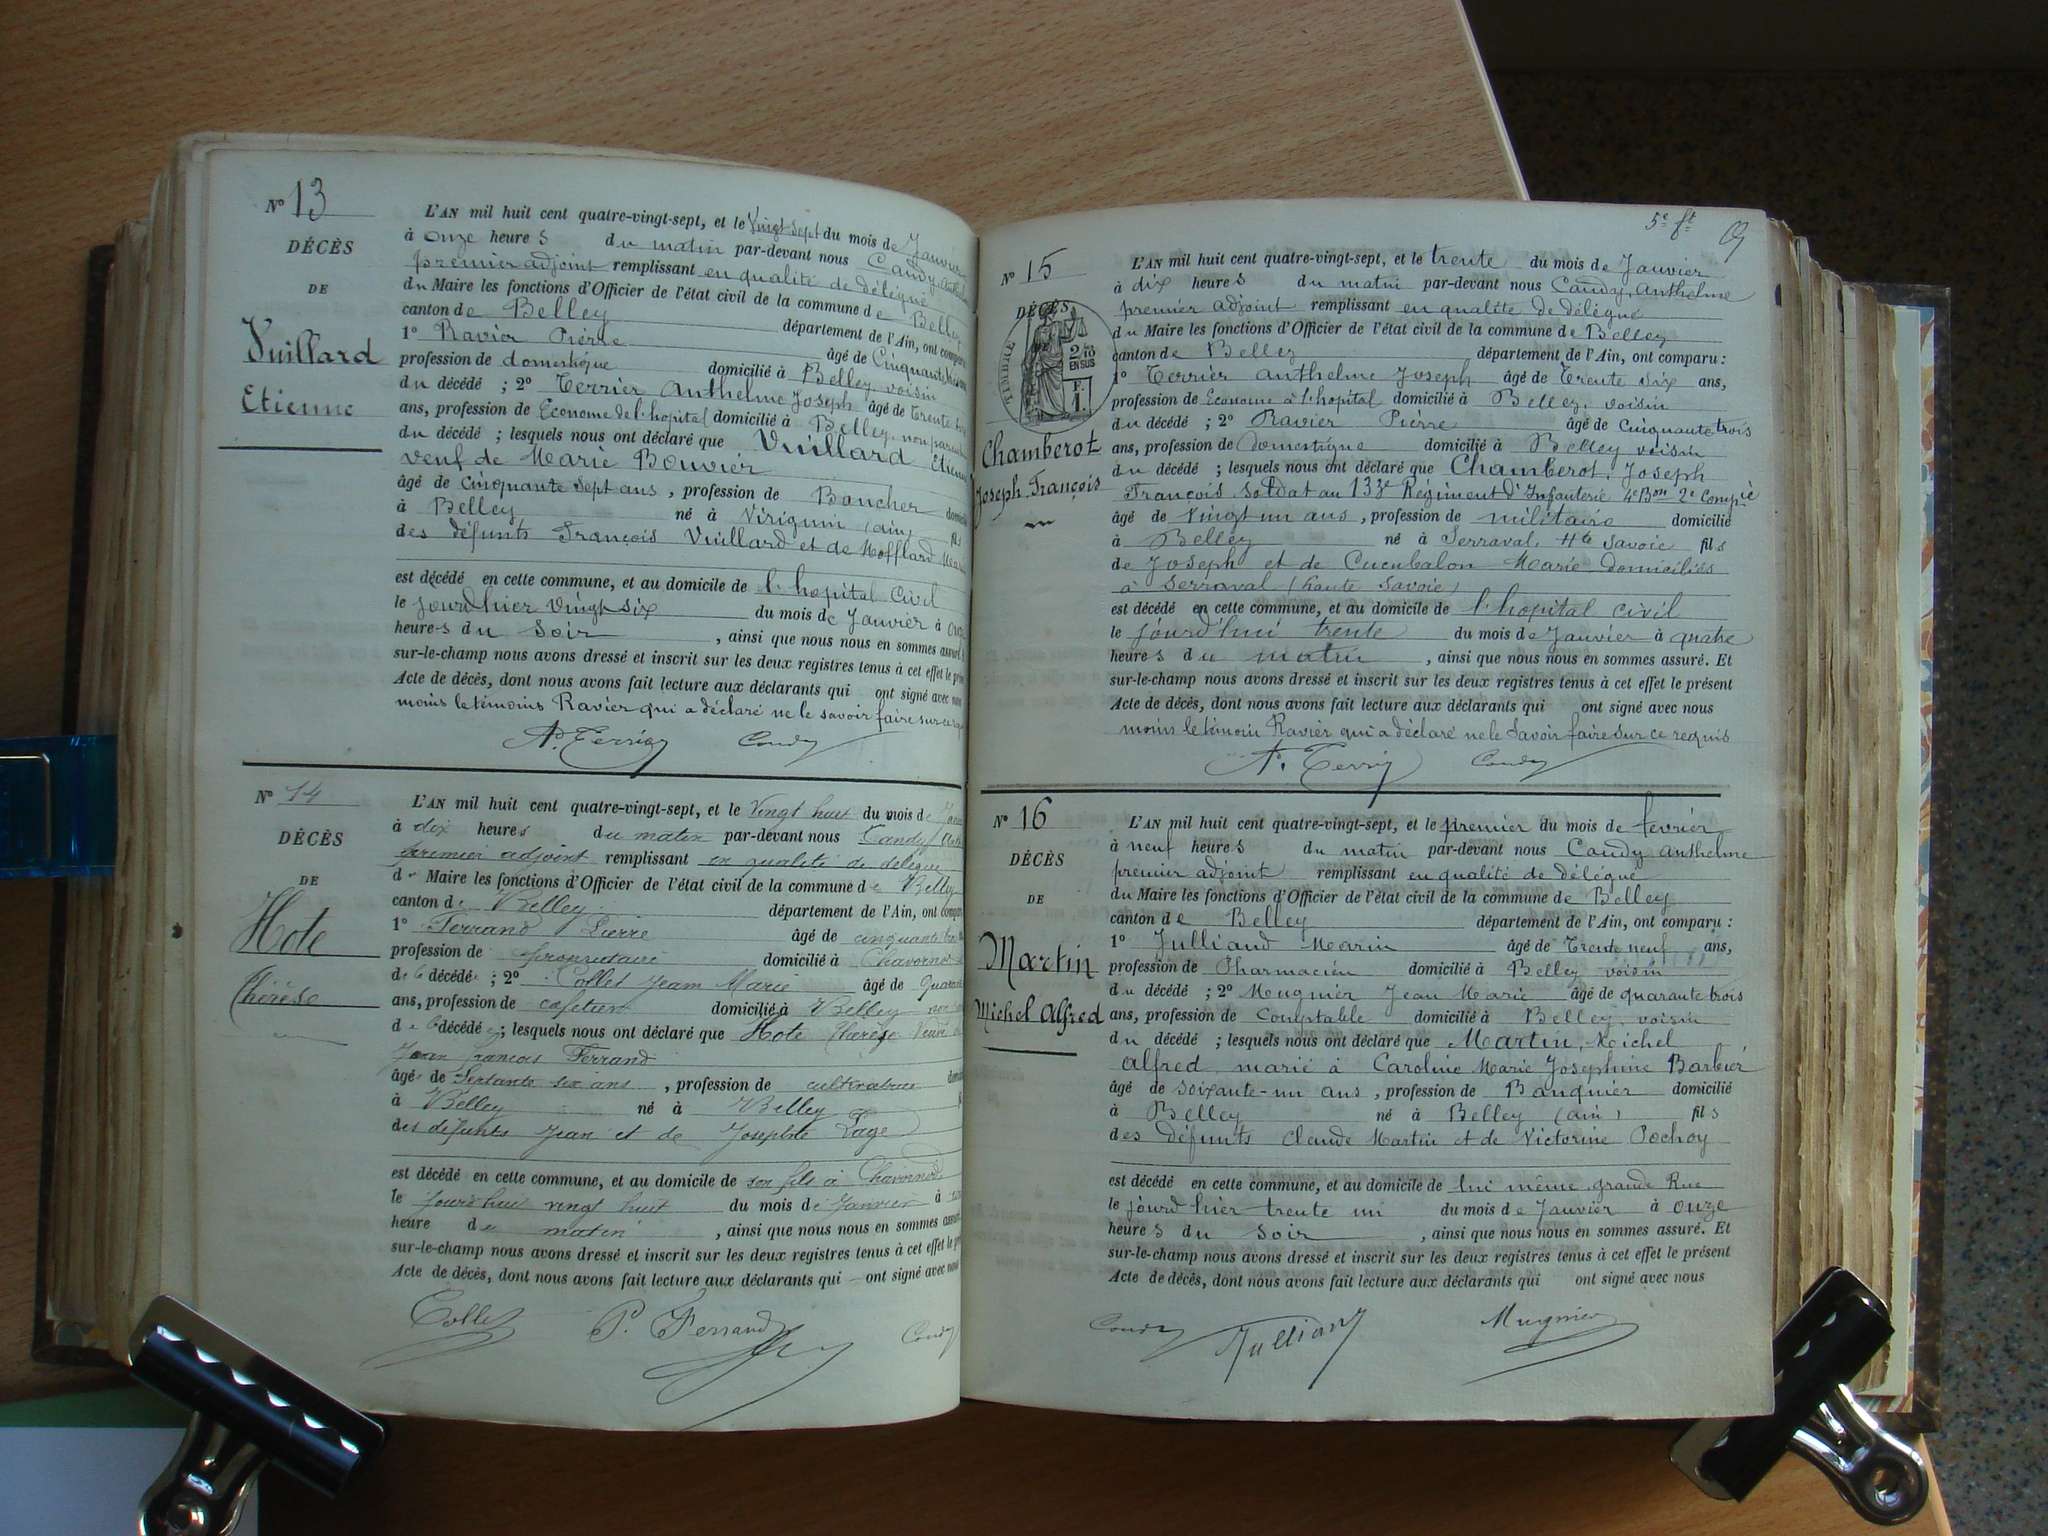 Nº 13
DÉCÈS
DE
Vuillard
Etienne
L'AN mil huit cent quatre-vingt-sept, et le Vingt sept du mois de Janvier
à Onze heures du matin par-devant nous Candy,
premier adjoint remplissant en qualité de délégué
du Maire les fonctions d'Officier de l'état civil de la commune de Belley
canton de Belley département de l'Ain, ont
1º Ravier Pierre âgé de Cinquante
profession de domestique domicilié à Belley voisin
du décédé ; 2º Terrier Anthelme Joseph âgé de Trente
ans, profession de Econome de l'hopital domicilié à Belley, non
du décédé ; lesquels nous ont déclaré que Vuillard Etienne
veuf de Marie Bouvier
âgé de Cinquante sept ans, profession de Boucher
à Belley né à Virignin (ain) fils
des défunts François Vuillard et de
est décédé en cette commune, et au domicile de l'hopital civil
le jourd'hier vingt six du mois de Janvier à onze
heures du Soir, ainsi que nous nous en sommes
sur-le-champ nous avons dressé et inscrit sur les deux registres tenus à cet effet le
Acte de décès, dont nous avons fait lecture aux déclarants qui ont signé avec nous
moins le témoins Ravier qui a déclaré ne le savoir faire sur ce
A. Terrier Candy
Nº 14
DÉCÈS
DE
Hote
Thérèse
L'AN mil huit cent quatre-vingt-sept, et le Vingt huit du mois de
à dix heures du matin par-devant nous Candy,
premier adjoint remplissant en qualité de délégué
du Maire les fonctions d'Officier de l'état civil de la commune de Belley
canton de Belley département de l'Ain, ont
1º Ferrand Pierre âgé de cinquante
profession de propriétaire domicilié à
de la décédée ; 2º Collet Jean Marie âgé de
ans, profession de cafetier domicilié à Belley non
de la décédée ; lesquels nous ont déclaré que Hote Thérèse Veuve de
Jean françois Ferrand
âgée de Septante six ans, profession de cultivatrice
à Belley né à Belley
des défunts Jean et de Josephte Page
est décédé en cette commune, et au domicile de son fils à
le jourd'hui vingt huit du mois de Janvier à
heure du matin, ainsi que nous nous en sommes
sur-le-champ nous avons dressé et inscrit sur les deux registres tenus à cet effet le
Acte de décès, dont nous avons fait lecture aux déclarants qui ont signé avec nous
Collet P. Ferrand Candy
5e ft
Nº 15
DÉCÈS
TIMBRE
2/10
EN SUS
Chamberot
Joseph François
L'AN mil huit cent quatre-vingt-sept, et le trente du mois de Janvier
à dix heures du matin par-devant nous Candy, Anthelme
premier adjoint remplissant en qualité de délégué
du Maire les fonctions d'Officier de l'état civil de la commune de Belley
canton de Belley département de l'Ain, ont comparu :
1º Terrier Anthelme Joseph âgé de Trente six ans,
profession de Econome à l'hopital domicilié à Belley, voisin
du décédé ; 2º Ravier Pierre âgé de cinquante trois
ans, profession de Domestique domicilié à Belley voisin
du décédé ; lesquels nous ont déclaré que Chamberot, Joseph
François soldat au 133e Régiment d'Infanterie 4e Bon 2e Compie
âgé de vingt un ans, profession de militaire domicilié
à Belley né à Serraval, Hte Savoie fils
de Joseph et de Cucubalon Marie domiciliés
à Serraval (haute Savoie)
est décédé en cette commune, et au domicile de l'hopital civil
le jourd'hui trente du mois de Janvier à quatre
heures du matin, ainsi que nous nous en sommes assuré. Et
sur-le-champ nous avons dressé et inscrit sur les deux registres tenus à cet effet le présent
Acte de décès, dont nous avons fait lecture aux déclarants qui ont signé avec nous
moins le témoin Ravier qui a déclaré ne le Savoir faire sur ce requis
A. Terrier Candy
Nº 16
DÉCÈS
DE
Martin
Michel Alfred
L'AN mil huit cent quatre-vingt-sept, et le premier du mois de fevrier
à neuf heures du matin par-devant nous Candy Anthelme
premier adjoint remplissant en qualité de délégué
du Maire les fonctions d'Officier de l'état civil de la commune de Belley
canton de Belley département de l'Ain, ont comparu :
1º Julliand Marin âgé de Trente neuf ans,
profession de Pharmacien domicilié à Belley voisin
du décédé ; 2º Mugnier Jean Marie âgé de quarante trois
ans, profession de Comptable domicilié à Belley, voisin
du décédé ; lesquels nous ont déclaré que Martin, Michel
Alfred marié à Caroline Marie Josephine Barbier
âgé de soixante-un ans, profession de Banquier domicilié
à Belley né à Belley (ain) fils
des défunts Claude Martin et de Victorine Pochoy
est décédé en cette commune, et au domicile de lui même grande Rue
le jourd'hier trente un du mois de Janvier à onze
heures du Soir, ainsi que nous nous en sommes assuré. Et
sur-le-champ nous avons dressé et inscrit sur les deux registres tenus à cet effet le présent
Acte de décès, dont nous avons fait lecture aux déclarants qui ont signé avec nous
Candy Julliand Mugnier